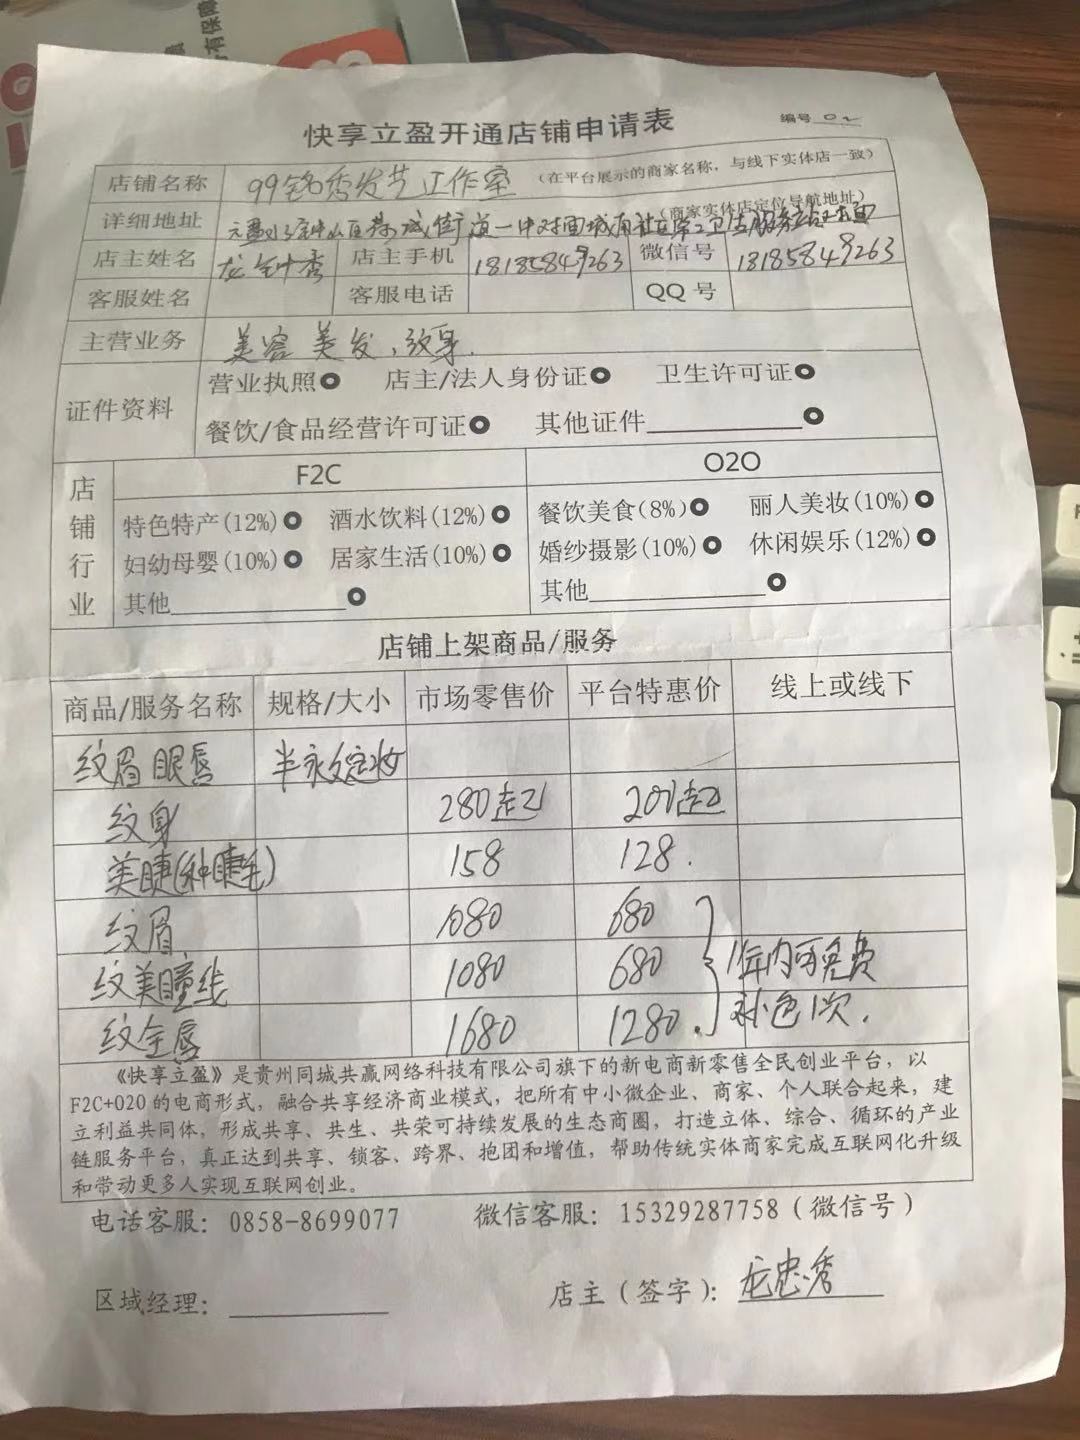 有保障
快享立盈开通店铺申请表
编号 02
店铺名称 99铭秀发艺工作室 (在平台展示的商家名称，与线下实体店一致)
(商家实体店定位导航地址)
详细地址 钟山区荷城街道一中对面城南社区第二卫生服务站
店主姓名 龙钟秀 店主手机 18185849263 微信号 18185849263
客服姓名 客服电话 QQ号
主营业务 美容 美发、纹身.
证件资料 营业执照 店主/法人身份证 卫生许可证
餐饮/食品经营许可证 其他证件
店铺行业 F2C O2O
特色特产(12%) 酒水饮料(12%) 餐饮美食(8%) 丽人美妆(10%)
妇幼母婴(10%) 居家生活(10%) 婚纱摄影(10%) 休闲娱乐(12%)
其他 其他
店铺上架商品/服务
商品/服务名称 规格/大小 市场零售价 平台特惠价 线上或线下
纹眉 眼唇 半永久定妆
纹身 280起 200起
美睫(种睫毛) 158 128.
纹眉 1080 680
纹美瞳线 1080 680 1年内可免费
纹全唇 1680 1280. 补色1次.
《快享立盈》是贵州同城共赢网络科技有限公司旗下的新电商新零售全民创业平台，以
F2C+O2O的电商形式，融合共享经济商业模式，把所有中小微企业、商家、个人联合起来，建
立利益共同体，形成共享、共生、共荣可持续发展的生态商圈，打造立体、综合、循环的产业
链服务平台，真正达到共享、锁客、跨界、抱团和增值，帮助传统实体商家完成互联网化升级
和带动更多人实现互联网创业。
电话客服：0858-8699077 微信客服：15329287758（微信号）
区域经理： 店主（签字）：龙忠秀